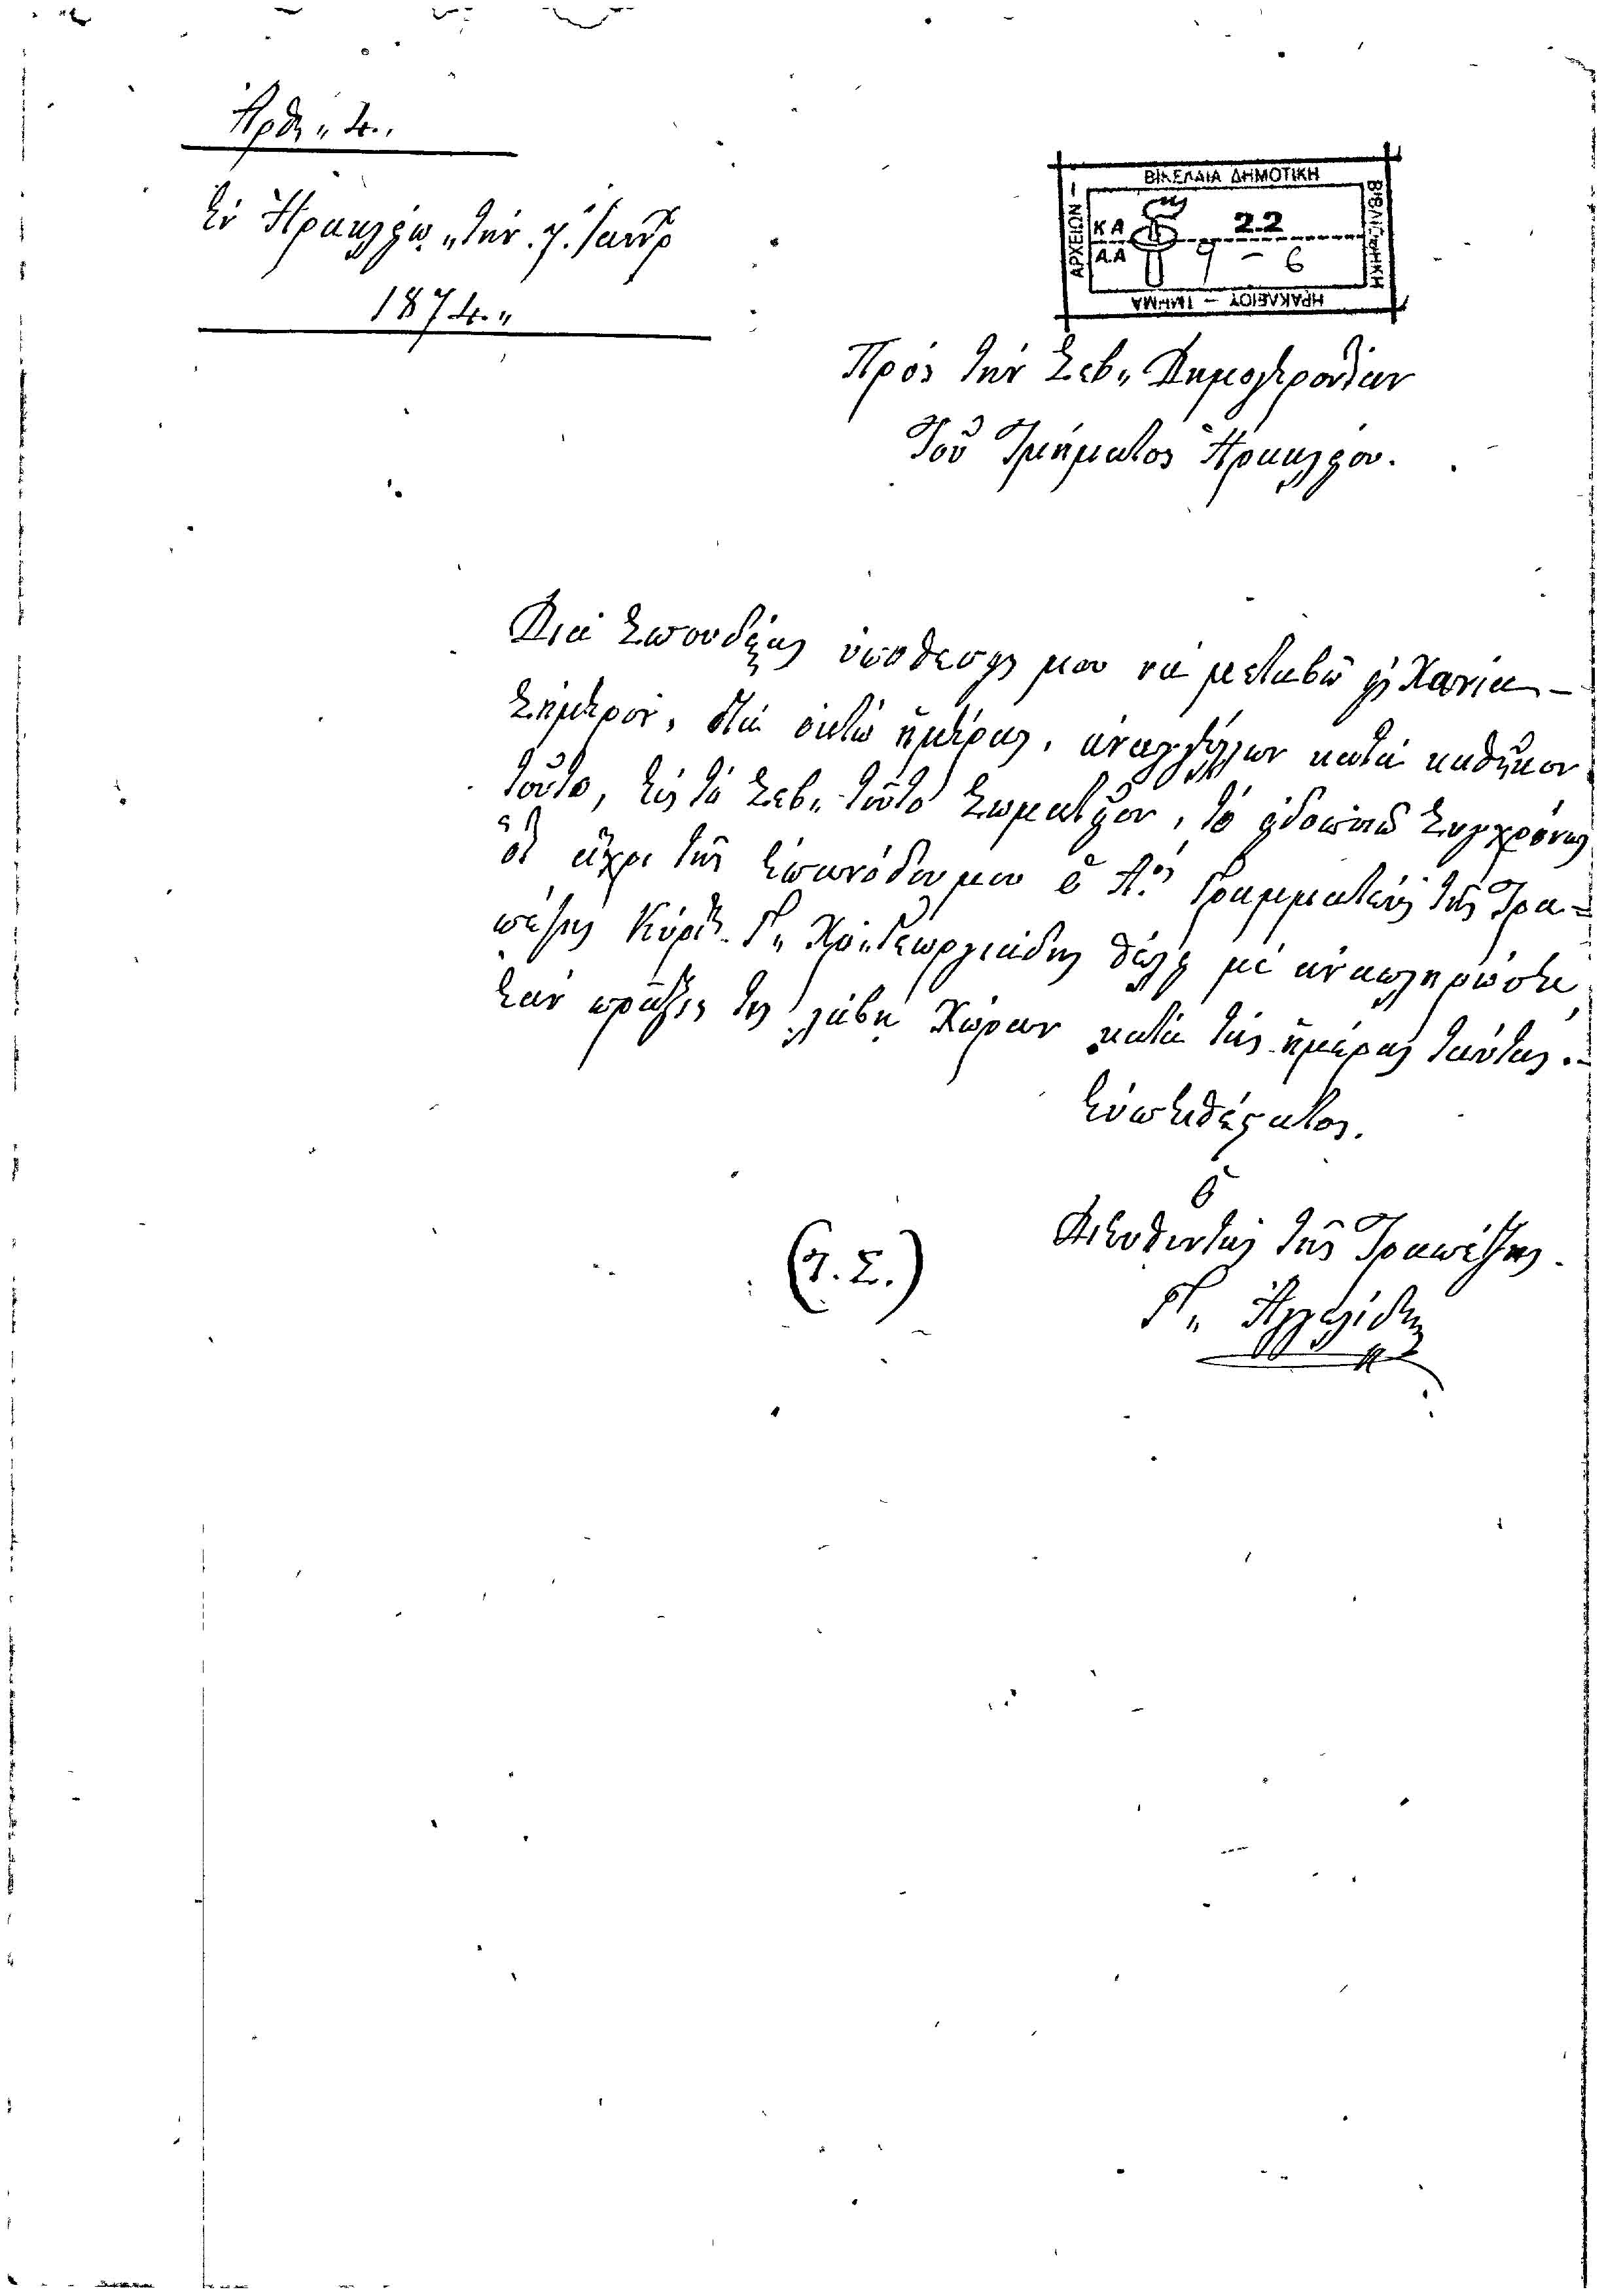 Ἀρθ„ 4.,
Ἐν Ἡρακλείῳ „ τὴν . 7. Ἰανουρ
1874.„
ΒΙΚΕΛΑΙΑ ΔΗΜΟΤΙΚΗ
ΒΙΒΛΙΟΘΗΚΗ
ΗΡΑΚΛΕΙΟΥ – ΤΜΗΜΑ
ΑΡΧΕΙΩΝ –
Κ Α 22
Α.Α 9 – 6
Πρὸς τὴν Σεβ„ Δημογεροντίαν
Τοῦ Τμήματος Ἡρακλείου.
Διὰ Σπουδαίας ὑποθέσεις μου νὰ μεταβῶ εἰς Χανία –
Σήμερον, διὰ ὀκτὼ ἡμέρας, ἀναγγέλλων κατὰ καθῆκον
τοῦτο, Εἰς τὸ Σεβ„ τοῦτο Σωματεῖον, τὸ εἰδοποιῶ Συγχρόνως
ὅτι ἄχρι τῆς Ἐπανόδου μου ὁ Α.ος Γραμματεὺς τῆς Τρα-
πέζης Κύριος Γ„ Χ"Γεωργιάδης θέλει μὲ ἀναπληρώσει,
Ἐὰν πρᾶξις τις λάβῃ Χώραν κατὰ τὰς ἡμέρας ταύτας.-
Εὐπειθέστατος.
ὁ
Διευθυντὴς τῆς Τραπέζης
(Τ. Σ.)
Γ„ Ἀγγελίδης